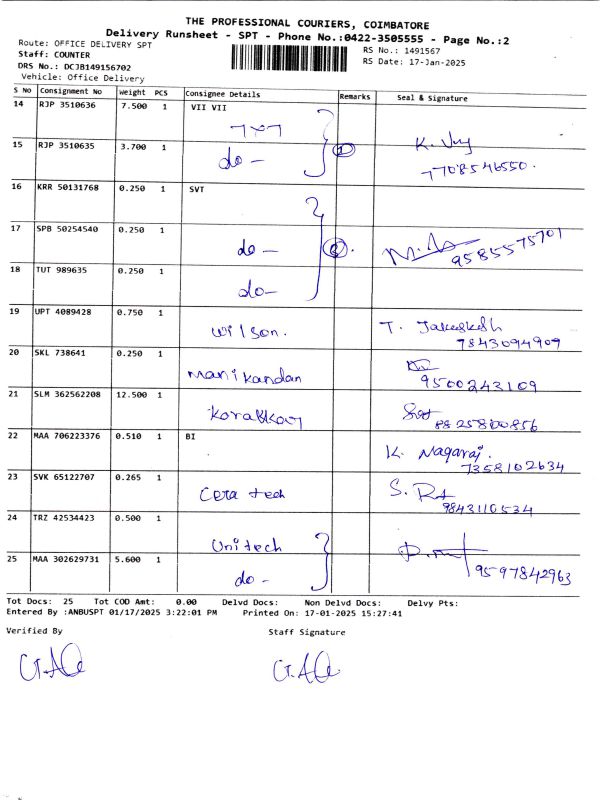 THE PROFESSIONAL COURIERS, COIMBATORE
Delivery Runsheet - SPT - Phone No.:0422-3505555 - Page No.:2
Route: OFFICE DELIVERY SPT
Staff: COUNTER
DRS No.: DCJB149156702
Vehicle: Office Delivery
RS No.: 1491567
RS Date: 17-Jan-2025
S No Consignment No Weight PCS Consignee Details Remarks Seal & Signature
14 RJP 3510636 7.500 1 VII VII
15 RJP 3510635 3.700 1 do -
7708546550.
16 KRR 50131768 0.250 1 SVT
17 SPB 50254540 0.250 1 do - 9585575701
18 TUT 989635 0.250 1 do -
19 UPT 4089428 0.750 1 Wilson. T.
7843094909
20 SKL 738641 0.250 1 Manikandan
9500243109
21 SLM 362562208 12.500 1
8825800856
22 MAA 706223376 0.510 1 BI K. Nagaraj.
7358102634
23 SVK 65122707 0.265 1 Cera tech
9843110534
24 TRZ 42534423 0.500 1 Unitech
25 MAA 302629731 5.600 1 do - 9597842963
Tot Docs: 25 Tot COD Amt: 0.00 Delvd Docs: Non Delvd Docs: Delvy Pts:
Entered By :ANBUSPT 01/17/2025 3:22:01 PM Printed On: 17-01-2025 15:27:41
Verified By Staff Signature